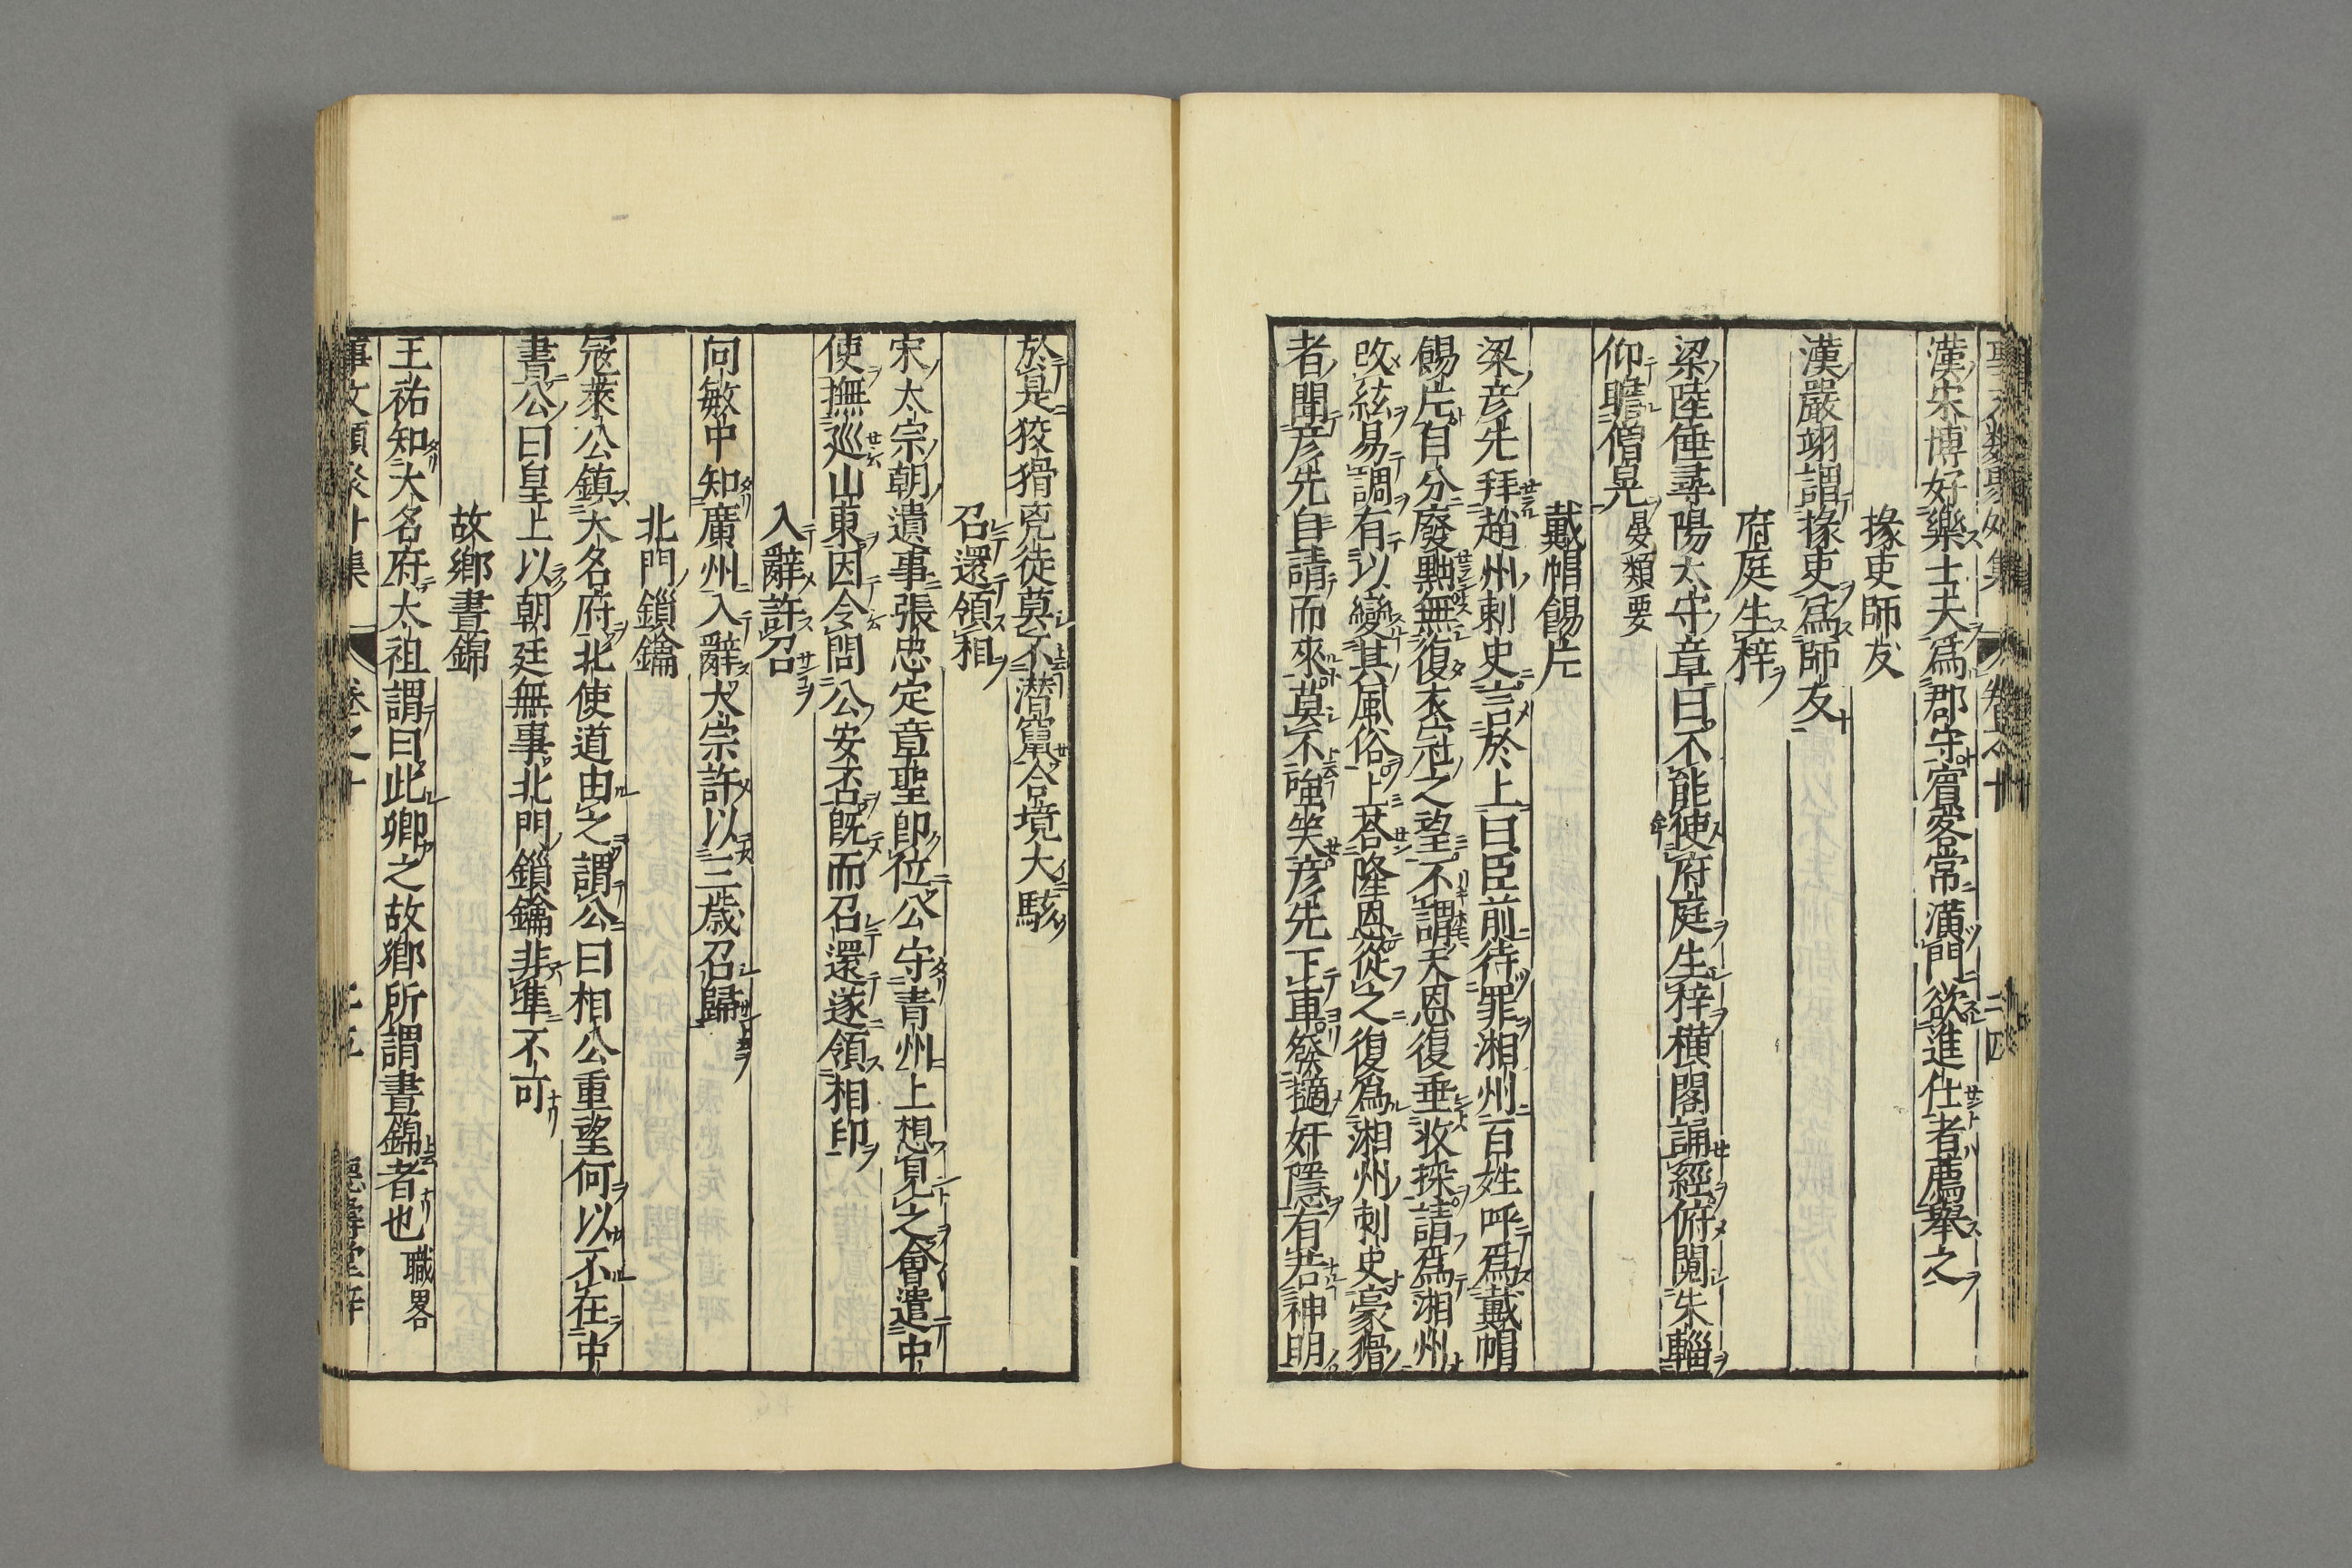 漢宋博好樂士夫爲郡守賓客常滿門欲進仕者薦擧之
掾吏師友
漢嚴翊謂掾吏爲師友
府庭生梓
梁陸倕尋陽太守章曰不能使府庭生梓橫閣誦經俯閱朱轓
仰瞻僧晃 晏類要
戴帽餳片
梁彦先拜趙州刺史言於上曰臣前待罪湘州百姓呼爲戴帽
餳片自分廢黜無復衣冠之望不謂天恩復垂收採請爲湘州
改絃易調有以變其風俗上荅隆恩從之復爲湘州刺史豪猾
者聞彦先自請而來莫不強笑彦先下車發擿奸隱有若神明
於是狡猾兇徒莫不潛竄合境大駭
召還領相
宋太宗朝遺事張忠定章聖即位公守青州上想見之會遣中
使撫巡山東因令問公安否既而召還遂領相印
入辭許召
向敏中知廣州入辭太宗許以三歳召歸
北門鎖鑰
冦萊公鎮大名府北使道由之謂公曰相公重望何以不在中
書公曰皇上以朝廷無事北門鎖鑰非凖不可
故鄉晝錦
王祐知大名府太祖謂曰此卿之故鄉所謂晝錦者也 職畧